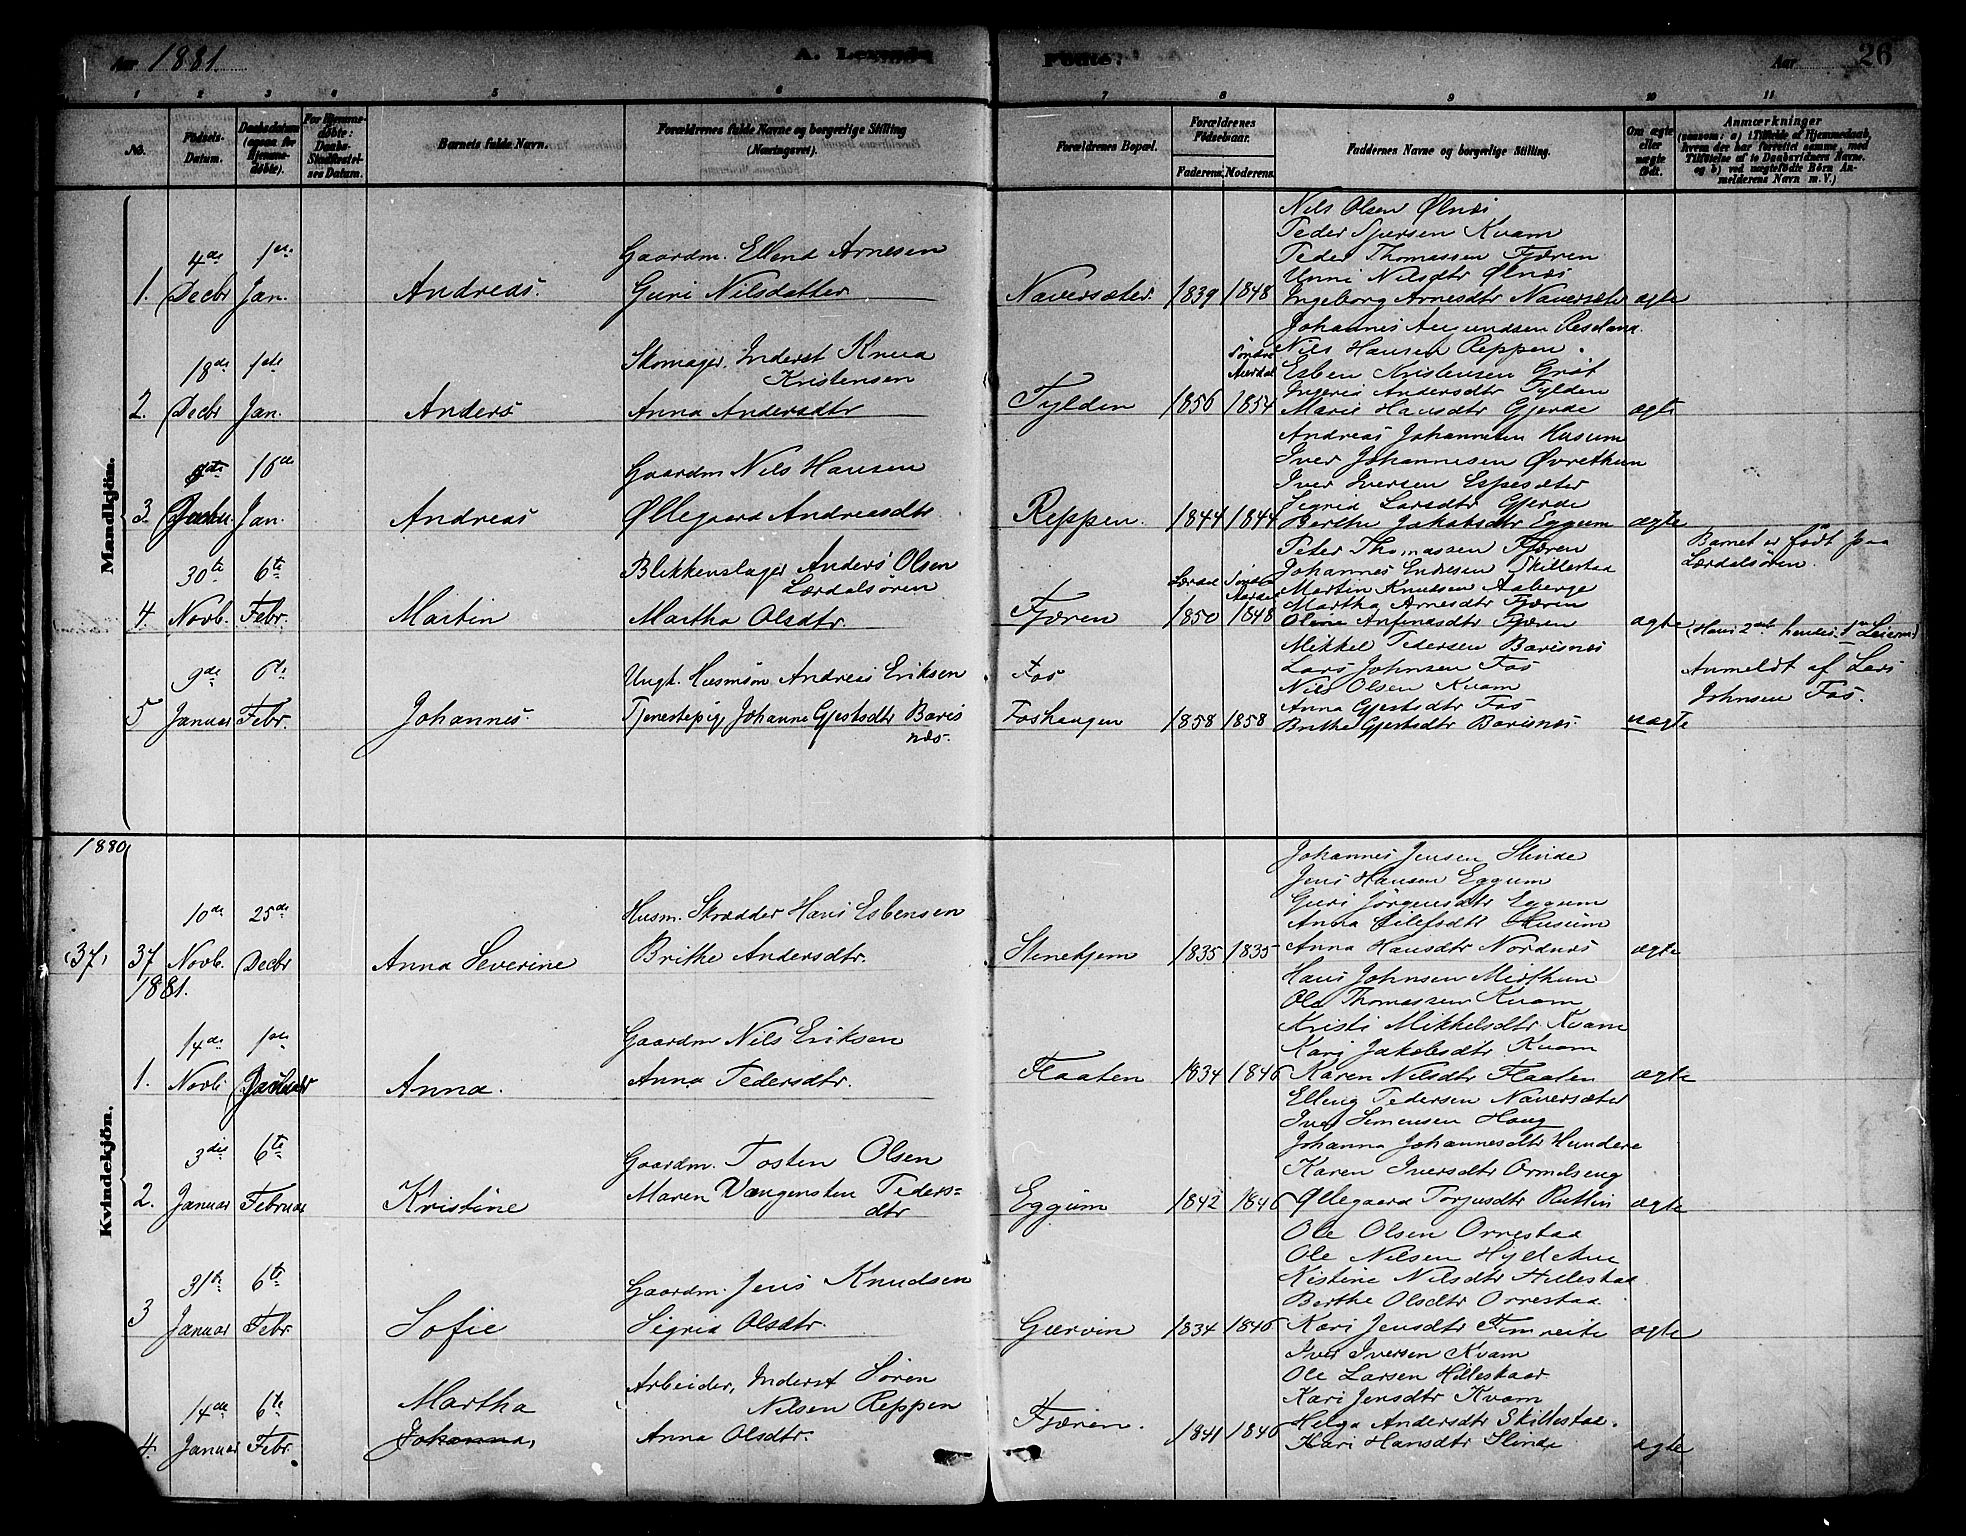 Aar 1881.
A. Levende
Fødte.
Aar
26
1 2 3 4 5 6 7 8 9 10 11
No.
Fødsels-Datum.
Daabsdatum (ogsaa for Hjemme-døbte).
For Hjemme-døbte: Daabs-Stadfæstel-ses Datum.
Barnets fulde Navn.
Forældrenes fulde Navne og borgerlige Stilling (Næringsvei).
Forældrenes Bopæl.
Forældrenes Fødselsaar.
Faderens. Moderens.
Faddernes Navne og borgerlige Stilling.
Om ægte eller uægte født.
Anmærkninger
(saasom: a) i Tilfælde af Hjemmedaab, hvem der har forrettet samme, med Tilføielse af to Daabsvidners Navne. og b) ved uægtefødte Børn An-melderens Navn m. V.)
Mandkjön.
1. 4de Decbr 1ste Jan.
Andreas.
Gaardm. Ellend Arnesen
Guri Nilsdatter
Naversæter 1839 1848
Nils Olsen Ølnæs
Peder Iversen Kvam
Peder Thomassen Fjæren
Unni Nilsdtr Ølnæs
Ingeborg Arnesdtr Naversæter
ægte
2. 18de Decbr 1ste Jan.
Anders
Skomager, Inderst Knud
Kristensen
Anna Andersdtr
Tylden 1856 Søndre Aurdal 1854
Johannes Amundsen Reseland
Nils Hansen Reppen.
Esben Kristensen Grøt
Ingeri Andersdtr Tylden
Marie Hansdtr Gjerde
ægte
3. 16de Jan.
Andreas
Gaardm Nils Hansen
Øllegaard Andreasdtr
Reppen. 1844 1844
Andreas Johannesen Husum
Iver Johannesen Øvrethun
Iver Iversen Espesæter
Sigrid Larsdtr Gjerde
Berthe Jakobsdtr Eggum
ægte
4. 30te Novb. 6te Febr.
Martin
Blikkenslager Anders Olsen
Lærdalsören
Martha Olsdtr.
Fjæren Lærdal 1850 Søndre Aurdal 1848
Peter Thomassen Fjæren
Johannes Endresen Skillestad
Martin Knudsen Aaberge
Martha Arnesdtr Fjæren
Oline Anfinnsdtr Fjæren
ægte
Barnet er født paa
Lærdalsören.
5 9de Januar 6te Febr.
Johannes.
Ungk. Husmsøn Andreas Eriksen
Tjenestepige Johanne Gjestsdtr Baris
næs.
Fos
Foshaugen 1858 1858
Mikkel Pedersen Barisnes
Lars Johnsen Fos
Nils Olsen Kvam
Anna Gjestsdtr Fos
Brithe Gjestsdtr Barisnes.
uægte
(Hans 2det hendes 1ste Leierm.)
Anmeldt af Lars
Johnsen Fos.
Kvindekjön.
1880
(37) 37 10de Novb. 25de Decbr
Anna Severine
Husm. Skrædder Hans Esbensen
Brithe Andersdtr.
Stenehjem 1835 1835
Johannes Jensen Slinde
Jens Hansen Eggum
Guri Jørgensdtr Eggum
Anna Eilefsdtr Husum
Anna Hansdtr Nordnæs
ægte
1881.
1. 14de Novb. 1ste Januar
Anna.
Gaardm Nils Eriksen
Anna Pedersdtr.
Flaaten 1834 1846
Hans Johnsen Midthun
Ole Thomassen Kvam
Kristi Mikkelsdtr Kvam
Kari Jakobsdtr Kvam
Karen Nilsdtr Flaaten
ægte
2. 3die Januar 6te Februar
Kristine
Gaardm. Tosten Olsen
Maren Vangensten Peders=
dtr
Eggum 1842 1846
Elling Pedersen Naversæter
Iver Simensen Haug
Johanna Johannesdtr Hundere
Karen Iversdtr Ormelseng
Øllegaard Torjusdtr Ruttin
ægte
3 31te Januar 6te Febr
Sofie
Gaardm. Jens Knudsen
Sigrid Olsdtr.
Gurvin 1834 1846
Ole Olsen Ornestad
Ole Nilsen Hyldehue
Kistine Nilsdtr Hillestad
Berthe Olsdtr Ornestad.
Kari Jensdtr Fimreite
ægte
4. 14de Januar 6te Febr.
Martha
Johanna,
Arbeider, Inderst Søren
Nilsen Reppen
Anna Olsdtr.
Fjæren. 1841 1846
Iver Iversen Kvam
Ole Larsen Hillestad
Kari Jensdtr Kvam
Helga Andersdtr Skillestad.
Kari Hansdtr Slinde
ægte